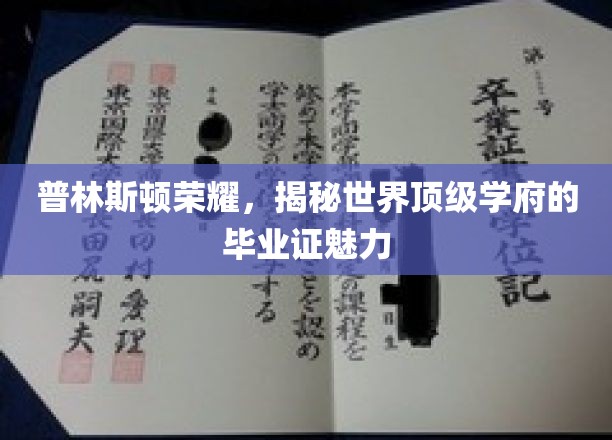 第 号
卒業証 学位記
本学商学 定の課程を
修めて本学 ことを認め
学士(商学)の する
平成
東京国際大学 田村愛理
東京国際大 長田尻嗣夫
日生
普林斯顿荣耀，揭秘世界顶级学府的
毕业证魅力